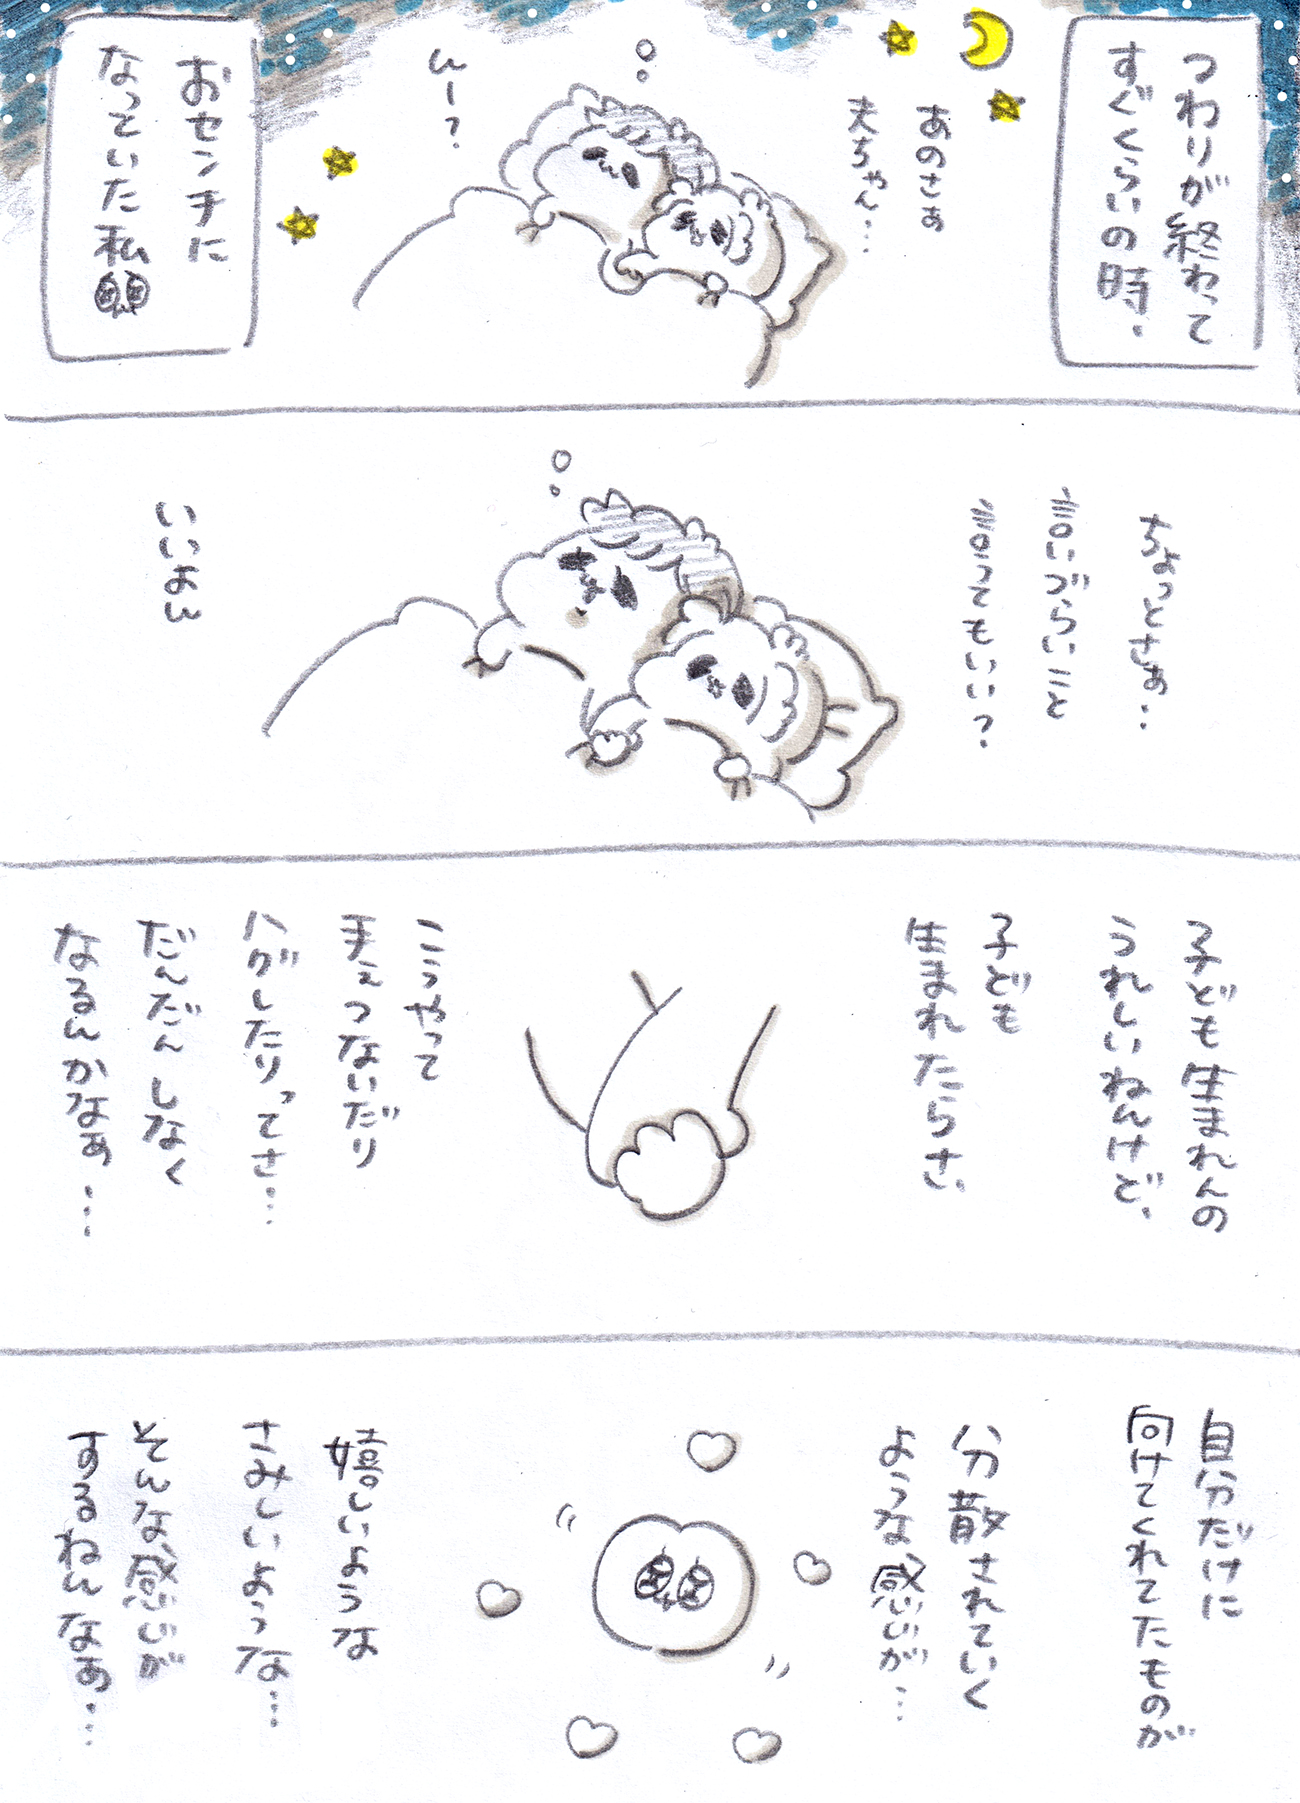 つわりが終わって
すぐくらいの時、
あのさぁ
夫ちゃん…
んー?
おセンチに
なっていた私
ちょっとさぁ…
言いづらいこと
言ってもいい?
いいよん
子ども生まれんの
うれしいねんけど、
子ども
生まれたらさ、
こうやって
手ぇつないだり
ハグしたりってさ…
だんだんしなく
なるんかなぁ…
自分だけに
向けてくれてたものが
分散されていく
ような感じが…
嬉しいような
さみしいような…
そんな感じが
するねんなぁ…